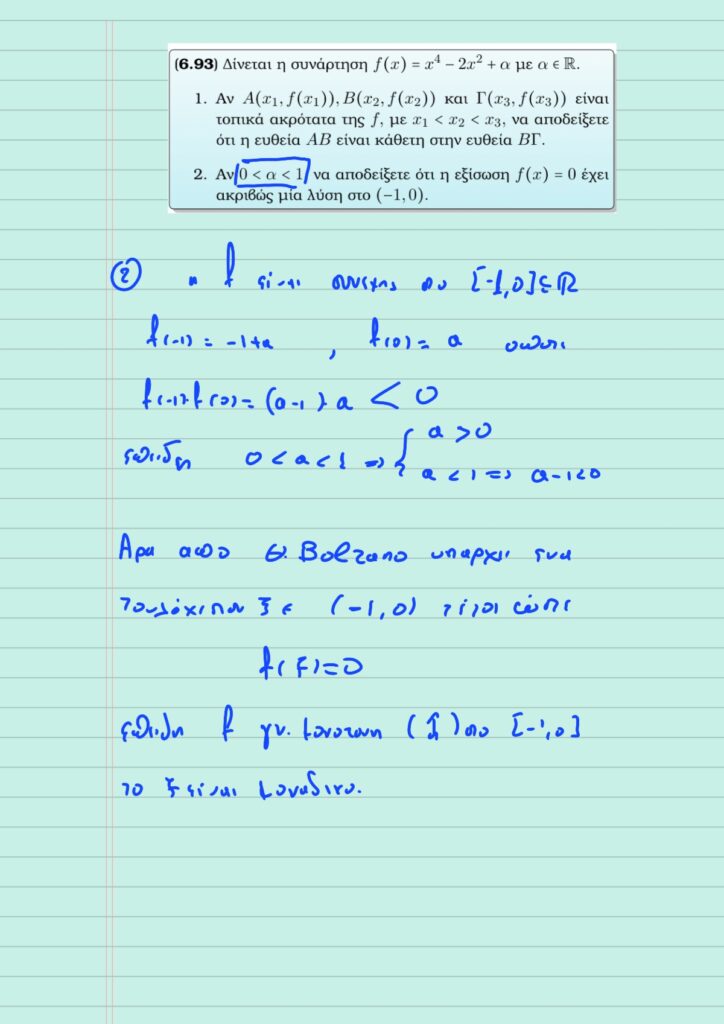 (6.93) Δίνεται η συνάρτηση f(x) = x⁴ − 2x² + α με α ∈ ℝ.
1. Αν A(x₁, f(x₁)), B(x₂, f(x₂)) και Γ(x₃, f(x₃)) είναι
τοπικά ακρότατα της f, με x₁ < x₂ < x₃, να αποδείξετε
ότι η ευθεία AB είναι κάθετη στην ευθεία BΓ.
2. Αν 0 < α < 1 να αποδείξετε ότι η εξίσωση f(x) = 0 έχει
ακριβώς μία λύση στο (−1, 0).
② η f είναι συνεχης στο [-1,0]⊆ℝ
f(-1) = -1+α , f(0) = α οποτε
f(-1)·f(0) = (α-1)·α < 0
επειδη 0 < α < 1 ⇒ { α > 0
α < 1 ⇒ α-1<0
Αρα απο Θ. Bolzano υπαρχει ενα
τουλάχιστον ξ ∈ (-1,0) τέτοιο ώστε
f(ξ)=0
επειδη f γν. μονοτονη (↑) στο [-1,0]
το ξ είναι μοναδικο.